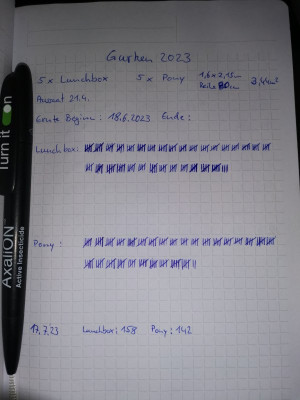 Gurken 2023
5 x Lunchbox 5 x Pony 1,6 x 2,15m 3,44m²
Reihe 80cm
Aussaat 21.4.
Ernte Beginn: 18.6.2023 Ende:
Lunchbox:
Pony:
17.7.23 Lunchbox: 158 Pony: 142
Turn it on
AxaliON™
Active Insecticide